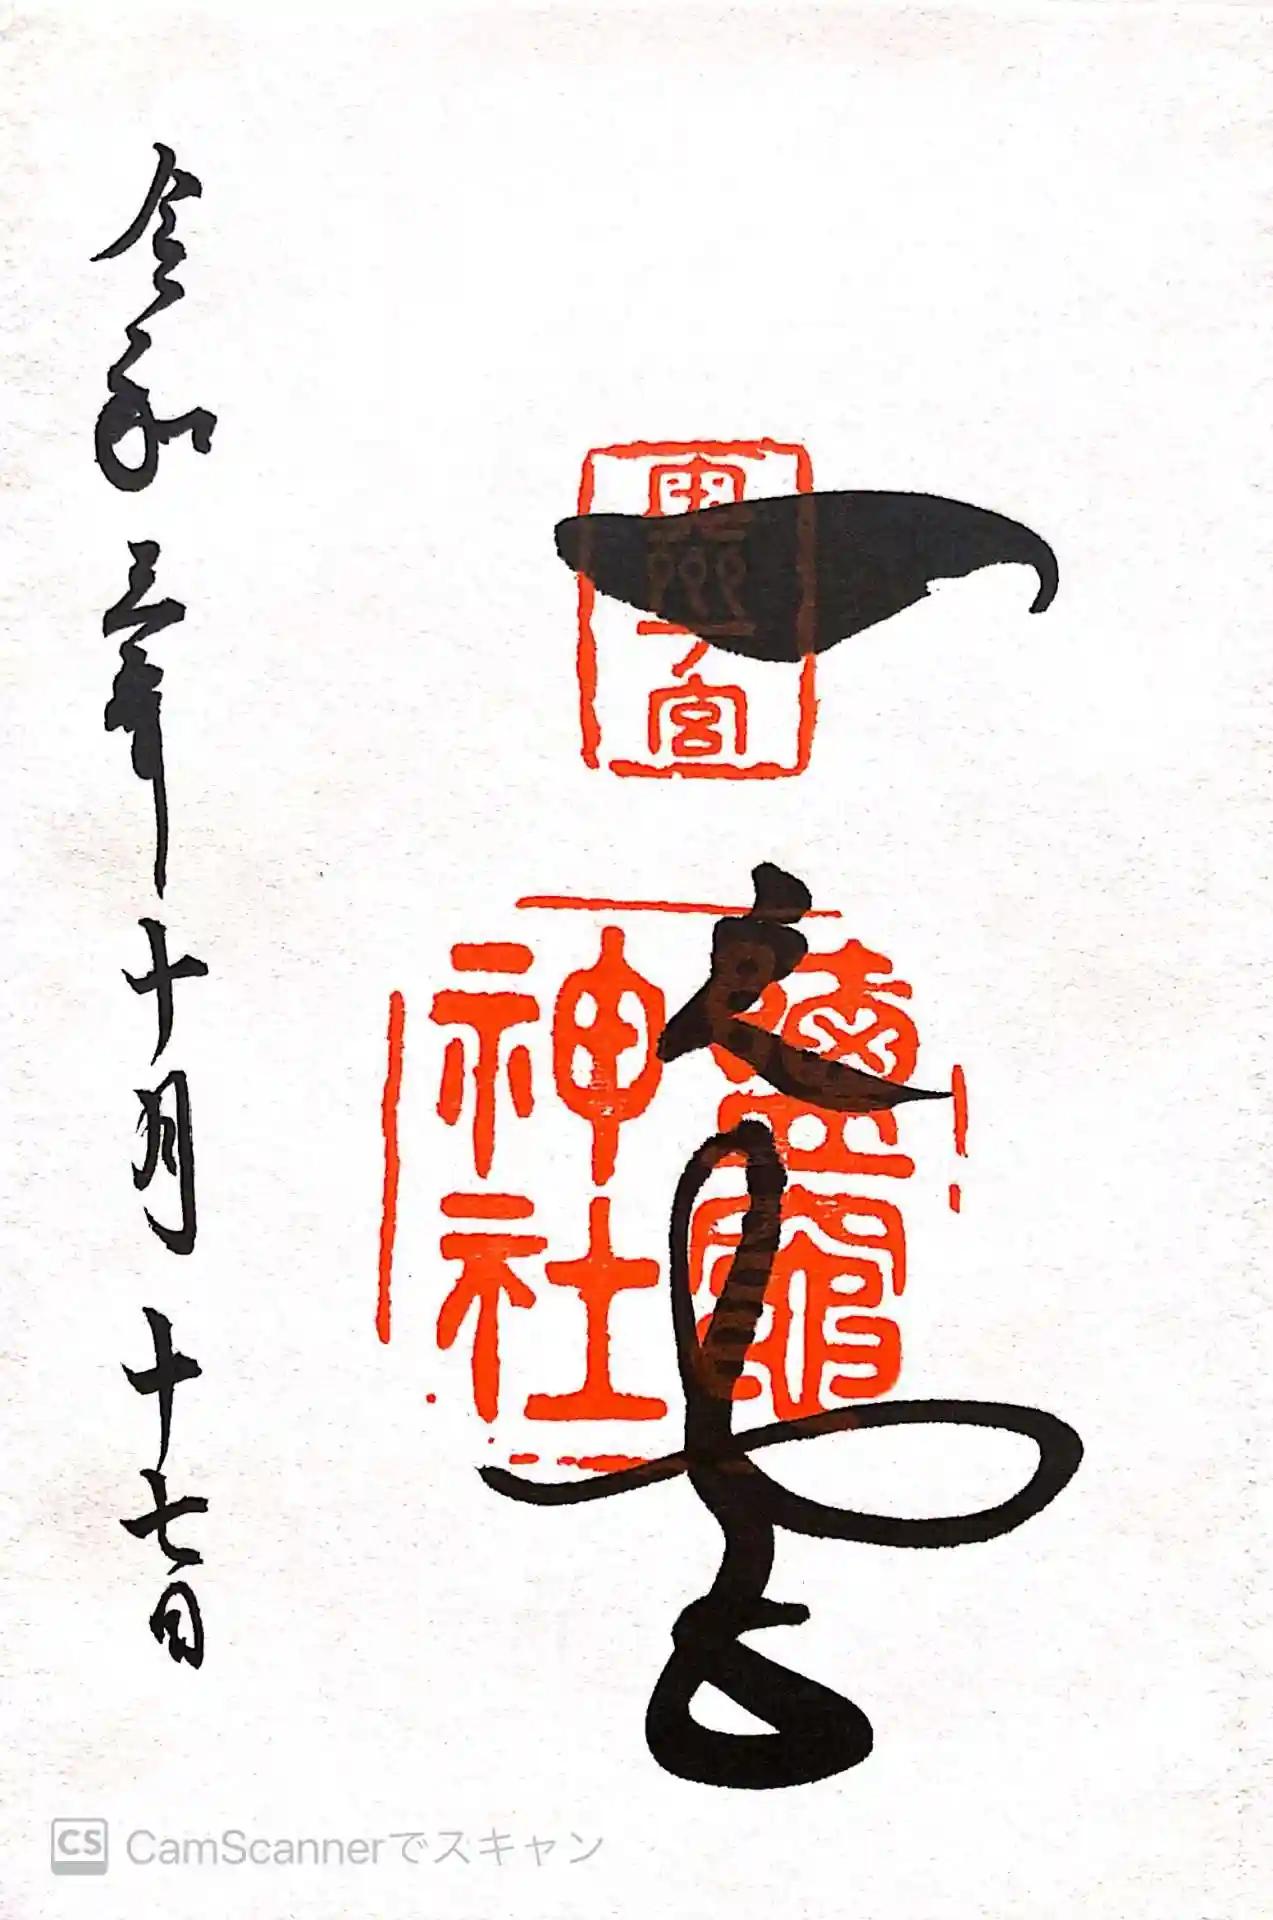 一之宮
奥州一ノ宮
鹽竈神社
令和三年十月十七日
CS CamScannerでスキャン